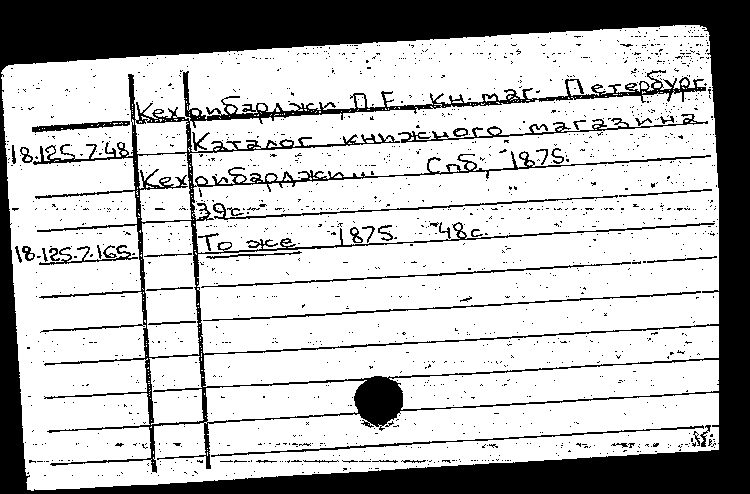 Кехрибарджи, П.Е., кн. маг. Петербург
18.125.7.48 Каталог книжного магазина
Кехрибарджи... Спб., 1875.
39с.
18.125.7.165. То же 1875. 48с.